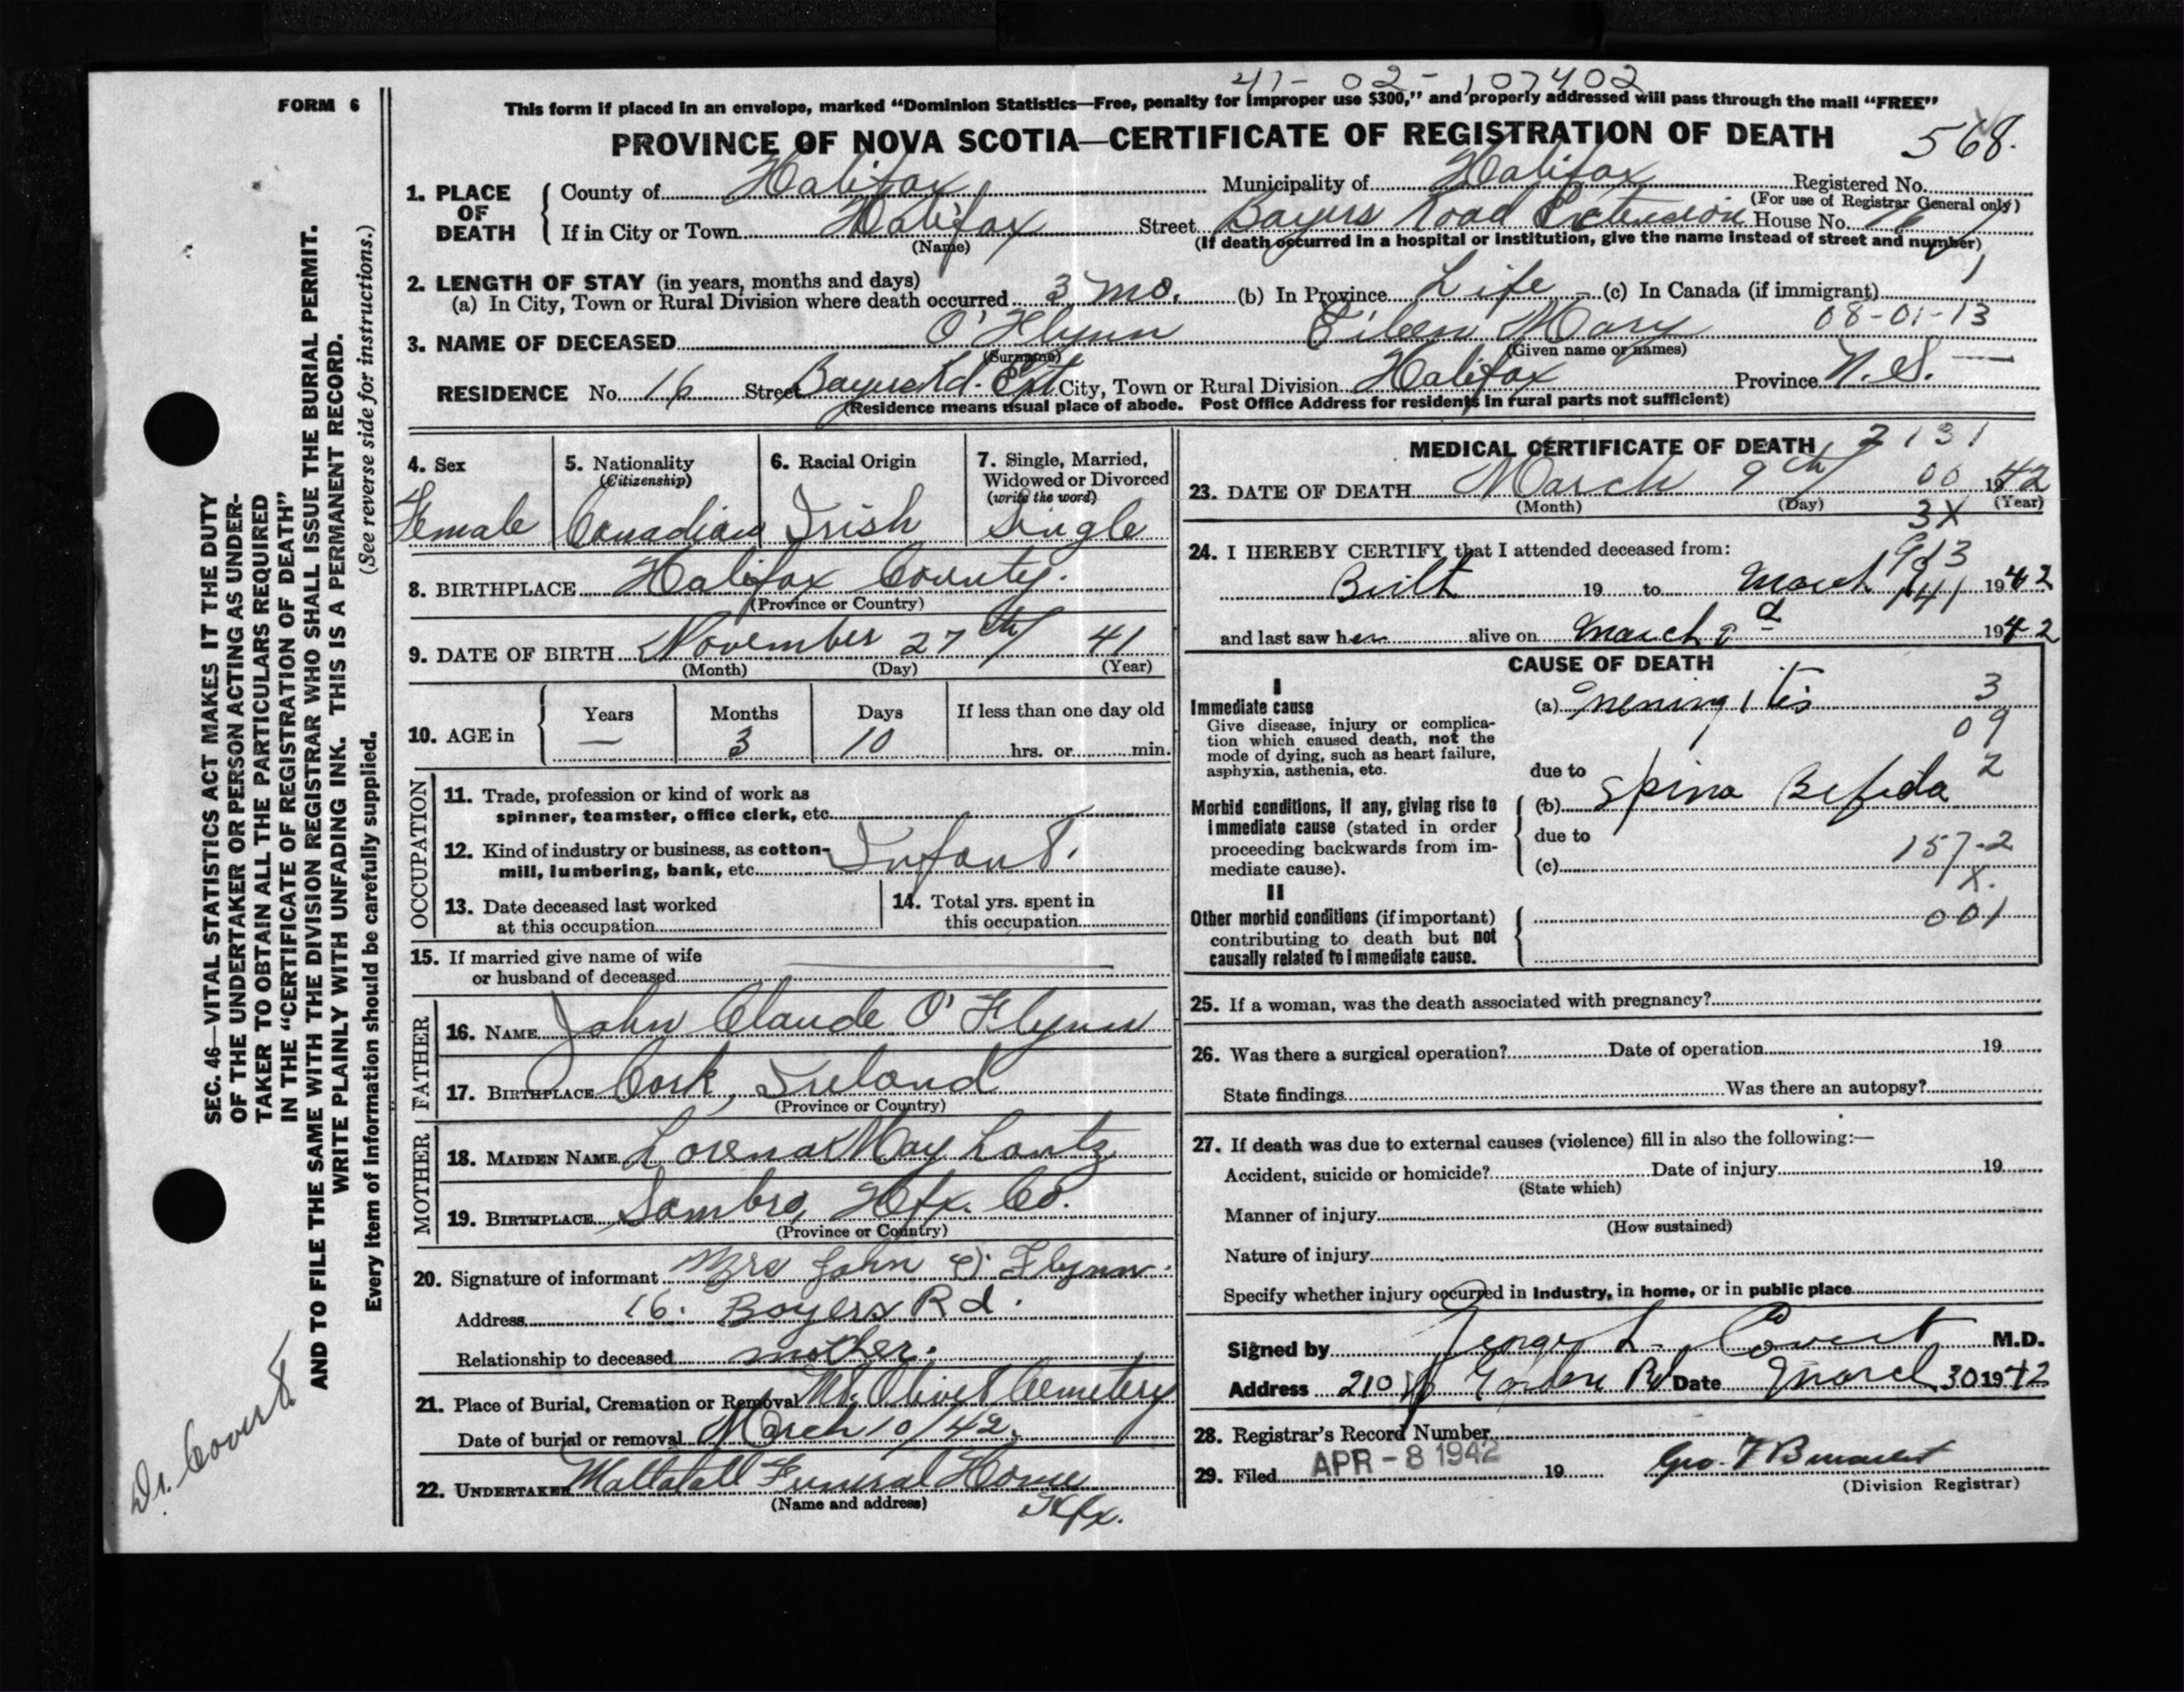 41-02-107402
FORM 6
This form if placed in an envelope, marked “Dominion Statistics—Free, penalty for improper use $300,” and properly addressed will pass through the mail “FREE”
PROVINCE OF NOVA SCOTIA—CERTIFICATE OF REGISTRATION OF DEATH
568.
1. PLACE OF DEATH
County of Halifax Municipality of Halifax Registered No.
(For use of Registrar General only)
If in City or Town Halifax Street Bayers Road Extension House No. 16
(Name) (If death occurred in a hospital or institution, give the name instead of street and number)
2. LENGTH OF STAY (in years, months and days)
(a) In City, Town or Rural Division where death occurred 3 mo. (b) In Province Life (c) In Canada (if immigrant)
3. NAME OF DECEASED O'Flynn Eileen Mary 08-01-13
(Surname) (Given name or names)
RESIDENCE No. 16 Street Bayers Rd. Ext City, Town or Rural Division Halifax Province N.S.
(Residence means usual place of abode. Post Office Address for residents in rural parts not sufficient)
4. Sex
Female
5. Nationality
(Citizenship)
Canadian
6. Racial Origin
Irish
7. Single, Married,
Widowed or Divorced
(write the word)
Single
8. BIRTHPLACE Halifax County.
(Province or Country)
9. DATE OF BIRTH November 27th 41
(Month) (Day) (Year)
10. AGE in
Years Months Days If less than one day old
— 3 10 hrs. or min.
OCCUPATION
11. Trade, profession or kind of work as
spinner, teamster, office clerk, etc.
12. Kind of industry or business, as cotton-
mill, lumbering, bank, etc. Infant.
13. Date deceased last worked
at this occupation
14. Total yrs. spent in
this occupation
15. If married give name of wife
or husband of deceased
FATHER
16. NAME John Claude O'Flynn
17. BIRTHPLACE Cork, Ireland
(Province or Country)
MOTHER
18. MAIDEN NAME Lorena May Lantz
19. BIRTHPLACE Sambro, Hfx. Co.
(Province or Country)
20. Signature of informant Mrs John O'Flynn.
Address 16. Bayers Rd.
Relationship to deceased mother.
21. Place of Burial, Cremation or Removal Mt. Olivet Cemetery
Date of burial or removal March 10/42.
22. UNDERTAKER Funeral Home
(Name and address) Hfx.
MEDICAL CERTIFICATE OF DEATH
2131
23. DATE OF DEATH March 9th 00 1942
(Month) (Day) (Year)
3X
24. I HEREBY CERTIFY that I attended deceased from:
913
Birth 19 to March 1942
141
and last saw her alive on March 1942
CAUSE OF DEATH
I
Immediate cause
Give disease, injury or complica-
tion which caused death, not the
mode of dying, such as heart failure,
asphyxia, asthenia, etc.
(a) meningitis 3
09
due to 2
Morbid conditions, if any, giving rise to
immediate cause (stated in order
proceeding backwards from im-
mediate cause).
(b) Spina Bifida
due to
157-2
(c)
X.
II
Other morbid conditions (if important)
contributing to death but not
causally related to immediate cause.
001
25. If a woman, was the death associated with pregnancy?
26. Was there a surgical operation? Date of operation 19
State findings Was there an autopsy?
27. If death was due to external causes (violence) fill in also the following:—
Accident, suicide or homicide? Date of injury 19
(State which)
Manner of injury
(How sustained)
Nature of injury
Specify whether injury occurred in Industry, in home, or in public place
Signed by Covert M.D.
Address 210 Rd Date March 30 1942
28. Registrar's Record Number
29. Filed APR - 8 1942 19
(Division Registrar)
SEC. 46—VITAL STATISTICS ACT MAKES IT THE DUTY
OF THE UNDERTAKER OR PERSON ACTING AS UNDER-
TAKER TO OBTAIN ALL THE PARTICULARS REQUIRED
IN THE “CERTIFICATE OF REGISTRATION OF DEATH”
AND TO FILE THE SAME WITH THE DIVISION REGISTRAR WHO SHALL ISSUE THE BURIAL PERMIT.
WRITE PLAINLY WITH UNFADING INK. THIS IS A PERMANENT RECORD.
Every item of information should be carefully supplied. (See reverse side for instructions.)
Dr. Covert